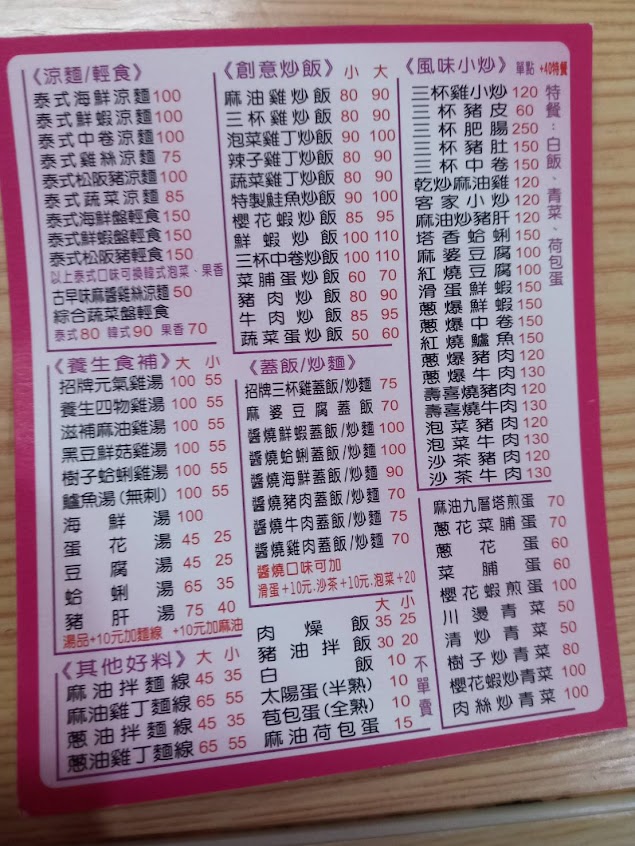 《涼麵/輕食》
泰式海鮮涼麵100
泰式鮮蝦涼麵100
泰式中卷涼麵100
泰式雞絲涼麵 75
泰式松阪豬涼麵100
泰式蔬菜涼麵 85
泰式海鮮盤輕食150
泰式鮮蝦盤輕食150
泰式松阪豬輕食150
以上泰式口味可換韓式泡菜、果香
古早味麻醬雞絲涼麵50
綜合蔬菜盤輕食
泰式80 韓式90 果香 70
《養生食補》大 小
招牌元氣雞湯 100 55
養生四物雞湯 100 55
滋補麻油雞湯 100 55
黑豆鮮菇雞湯 100 55
樹子蛤蜊雞湯 100 55
鱸魚湯(無刺) 100 55
海鮮湯 100
蛋花湯 45 25
豆腐湯 45 25
蛤蜊湯 65 35
豬肝湯 75 40
湯品+10元加麵線 +10元加麻油
《其他好料》大 小
麻油拌麵線 45 35
麻油雞丁麵線 65 55
蔥油拌麵線 45 35
蔥油雞丁麵線 65 55
《創意炒飯》小 大
麻油雞炒飯 80 90
三杯雞炒飯 80 90
泡菜雞丁炒飯 90 100
辣子雞丁炒飯 80 90
蔬菜雞丁炒飯 80 90
特製鮭魚炒飯 90 100
櫻花蝦炒飯 85 95
鮮蝦炒飯 100 110
三杯中卷炒飯 100 110
菜脯蛋炒飯 60 70
豬肉炒飯 80 90
牛肉炒飯 80 90
蔬菜蛋炒飯 50 60
《蓋飯/炒麵》
招牌三杯雞蓋飯/炒麵 75
麻婆豆腐蓋飯 70
醬燒鮮蝦蓋飯/炒麵 100
醬燒蛤蜊蓋飯/炒麵 100
醬燒海鮮蓋飯/炒麵 90
醬燒豬肉蓋飯/炒麵 70
醬燒牛肉蓋飯/炒麵 75
醬燒雞肉蓋飯/炒麵 70
醬燒口味可加
滑蛋+10元.沙茶+10元.泡菜+20
大 小
肉燥飯 35 25
豬油拌飯 30 20
白飯 10
太陽蛋(半熟) 10
荷包蛋(全熟) 10
麻油荷包蛋 15
不單賣
《風味小炒》 單點 +40特餐
三杯雞小炒 120
三杯豬皮 60
三杯肥腸 250
三杯豬肚 150
三杯中卷 150
乾炒麻油雞 120
客家小炒 120
麻油炒豬肝 120
塔香蛤蜊 150
麻婆豆腐 100
紅燒豆腐 100
滑蛋鮮蝦 150
蔥爆鮮蝦 150
蔥爆中卷 150
紅燒鱸魚 150
蔥爆豬肉 120
蔥爆牛肉 130
壽喜燒豬肉 120
壽喜燒牛肉 130
泡菜豬肉 120
泡菜牛肉 130
沙茶豬肉 120
沙茶牛肉 130
特餐：白飯、青菜、荷包蛋
麻油九層塔煎蛋 70
蔥花菜脯蛋 70
蔥花蛋 60
菜脯蛋 60
櫻花蝦煎蛋 100
川燙青菜 50
清炒青菜 50
樹子炒青菜 80
櫻花蝦炒青菜 100
肉絲炒青菜 100